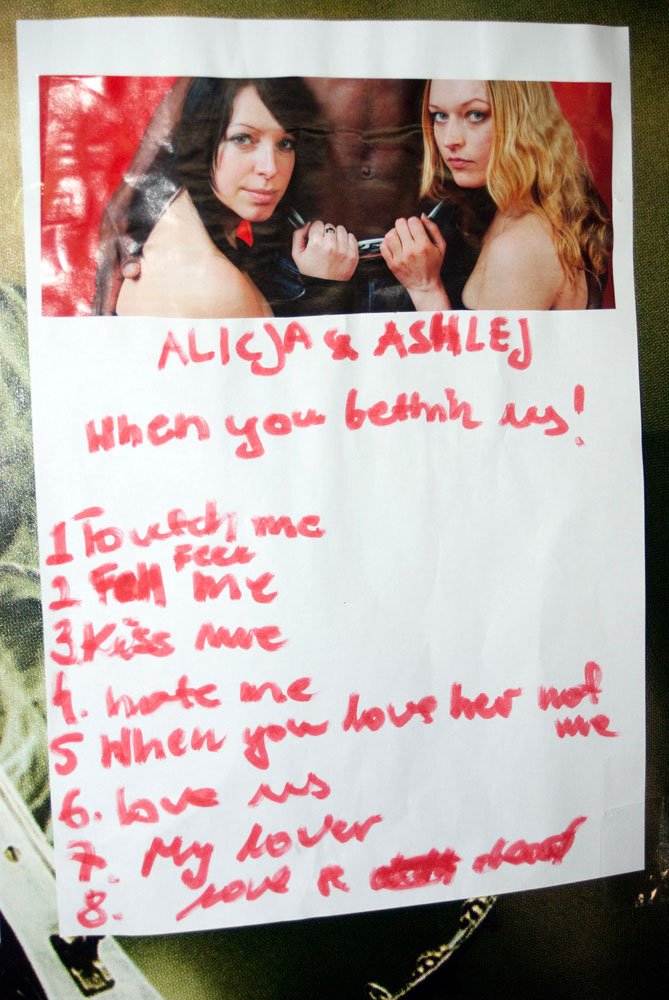 ALICJA & ASHLEJ
When you bettwin us!
1 Toutch me
Feel
2 Fell me
3. Kiss me
4. hate me
5 When you love her not
me
6. love us
7. My lover
8. love &